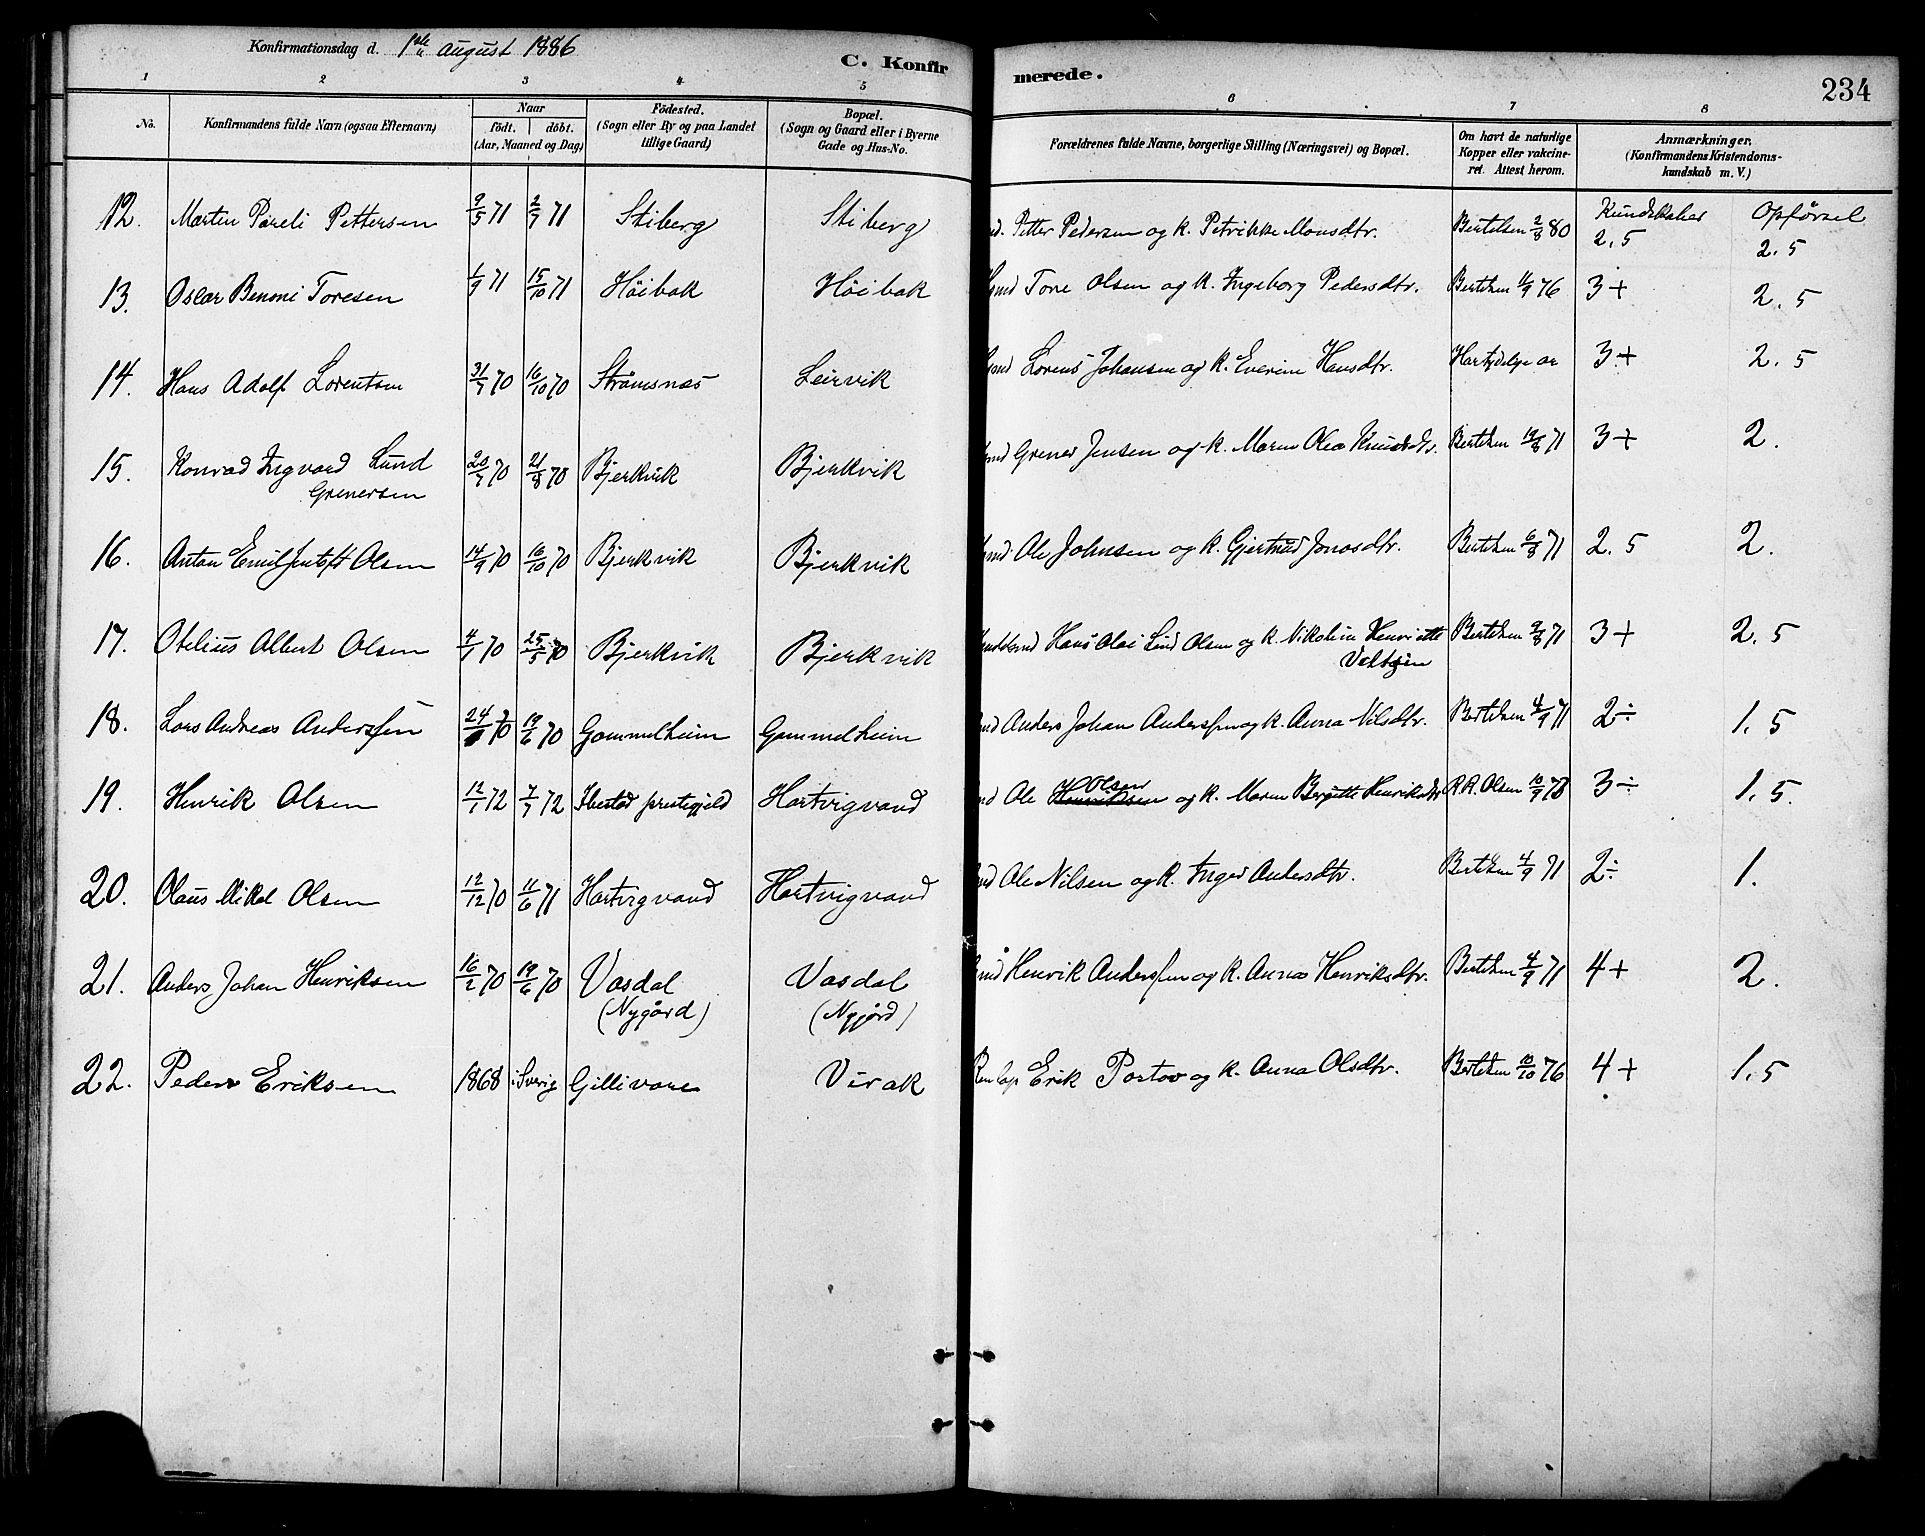 Konfirmationsdag d. 1ste August 1886
C. Konfirmerede.
234
1 2 3 4 5 6 7 8
No. Konfirmandens fulde Navn (ogsaa Efternavn) Naar født. døbt. (Aar, Maaned og Dag) Födested. (Sogn eller By og paa Landet tillige Gaard) Bopæl. (Sogn og Gaard eller i Byerne Gade og Hus-No. Forældrenes fulde Navne, borgerlige Stilling (Næringsvei) og Bopæl. Om havt de naturlige Kopper eller vakcineret. Attest herom. Anmærkninger. (Konfirmandens Kristendomskundskab m. V.)
Kundskaber Opførsel
12. Martin Pareli Pettersen 9/5 71 2/7 71 Stiberg Stiberg Petter Pedersen og k. Petrikke Monsdtr. Bertelsen 2/8 80 2.5 2.5
13. Oscar Benoni Toresen 1/9 71 15/10 71 Høibak Høibak Tore Olsen og k. Ingeborg Pedersdtr. Bertelsen 11/9 76 3+ 2.5
14. Hans Adolf Lorentsen 31/7 70 16/10 70 Strømsnæs Leirvik Lorens Johansen og k. Everine Hansdtr. Har tydelige ar 3+ 2.5
15. Konrad Ingvard Lund 20/7 70 21/8 70 Bjerkvik Bjerkvik Grener Jensen og k. Maren Olea Knudsdtr. Bertelsen 14/8 71 3+ 2.
Grenersen
16. Anton Emil Jentoft Olsen 14/9 70 16/10 70 Bjerkvik Bjerkvik Ole Johnsen og k. Gjertrud Jonasdtr. Bertelsen 6/8 71 2.5 2.
17. Otelius Albert Olsen 4/1 70 25/5 70 Bjerkvik Bjerkvik Hans Olai Lind Olsen og k. Nikoline Henriette Bertelsen 2/8 71 3+ 2.5
18. Lars Andreas Anderssen 24/3 70 19/6 70 Gammelheim Gammelheim Anders Johan Anderssen og k. Anna Nilsdtr. Bertelsen 4/9 71 2÷ 1.5
19. Henrik Olsen 12/1 72 7/7 72 Ibestad prestegjeld Hartvigvand Ole Henriksen Olsen og k. Maren Bergitte Henriksdtr R.R. Olsen 10/9 78 3÷ 1.5.
20. Olaus Mikal Olsen 12/12 70 11/6 71 Hartvigvand Hartvigvand Ole Nilsen og k. Inger Andersdtr. Bertelsen 4/9 71 2÷ 1.
21. Anders Johan Henriksen 16/2 70 19/6 70 Vasdal Vasdal Henrik Anderssen og k. Anna Henriksdtr. Bertelsen 4/9 71 4+ 2.
(Nygård) (Nyjord)
22. Peder Eriksen 1868 i Sverig Gillivare Virak Renlap Erik Portov og k. Anna Olsdtr. Bertelsen 10/10 76 4+ 1.5